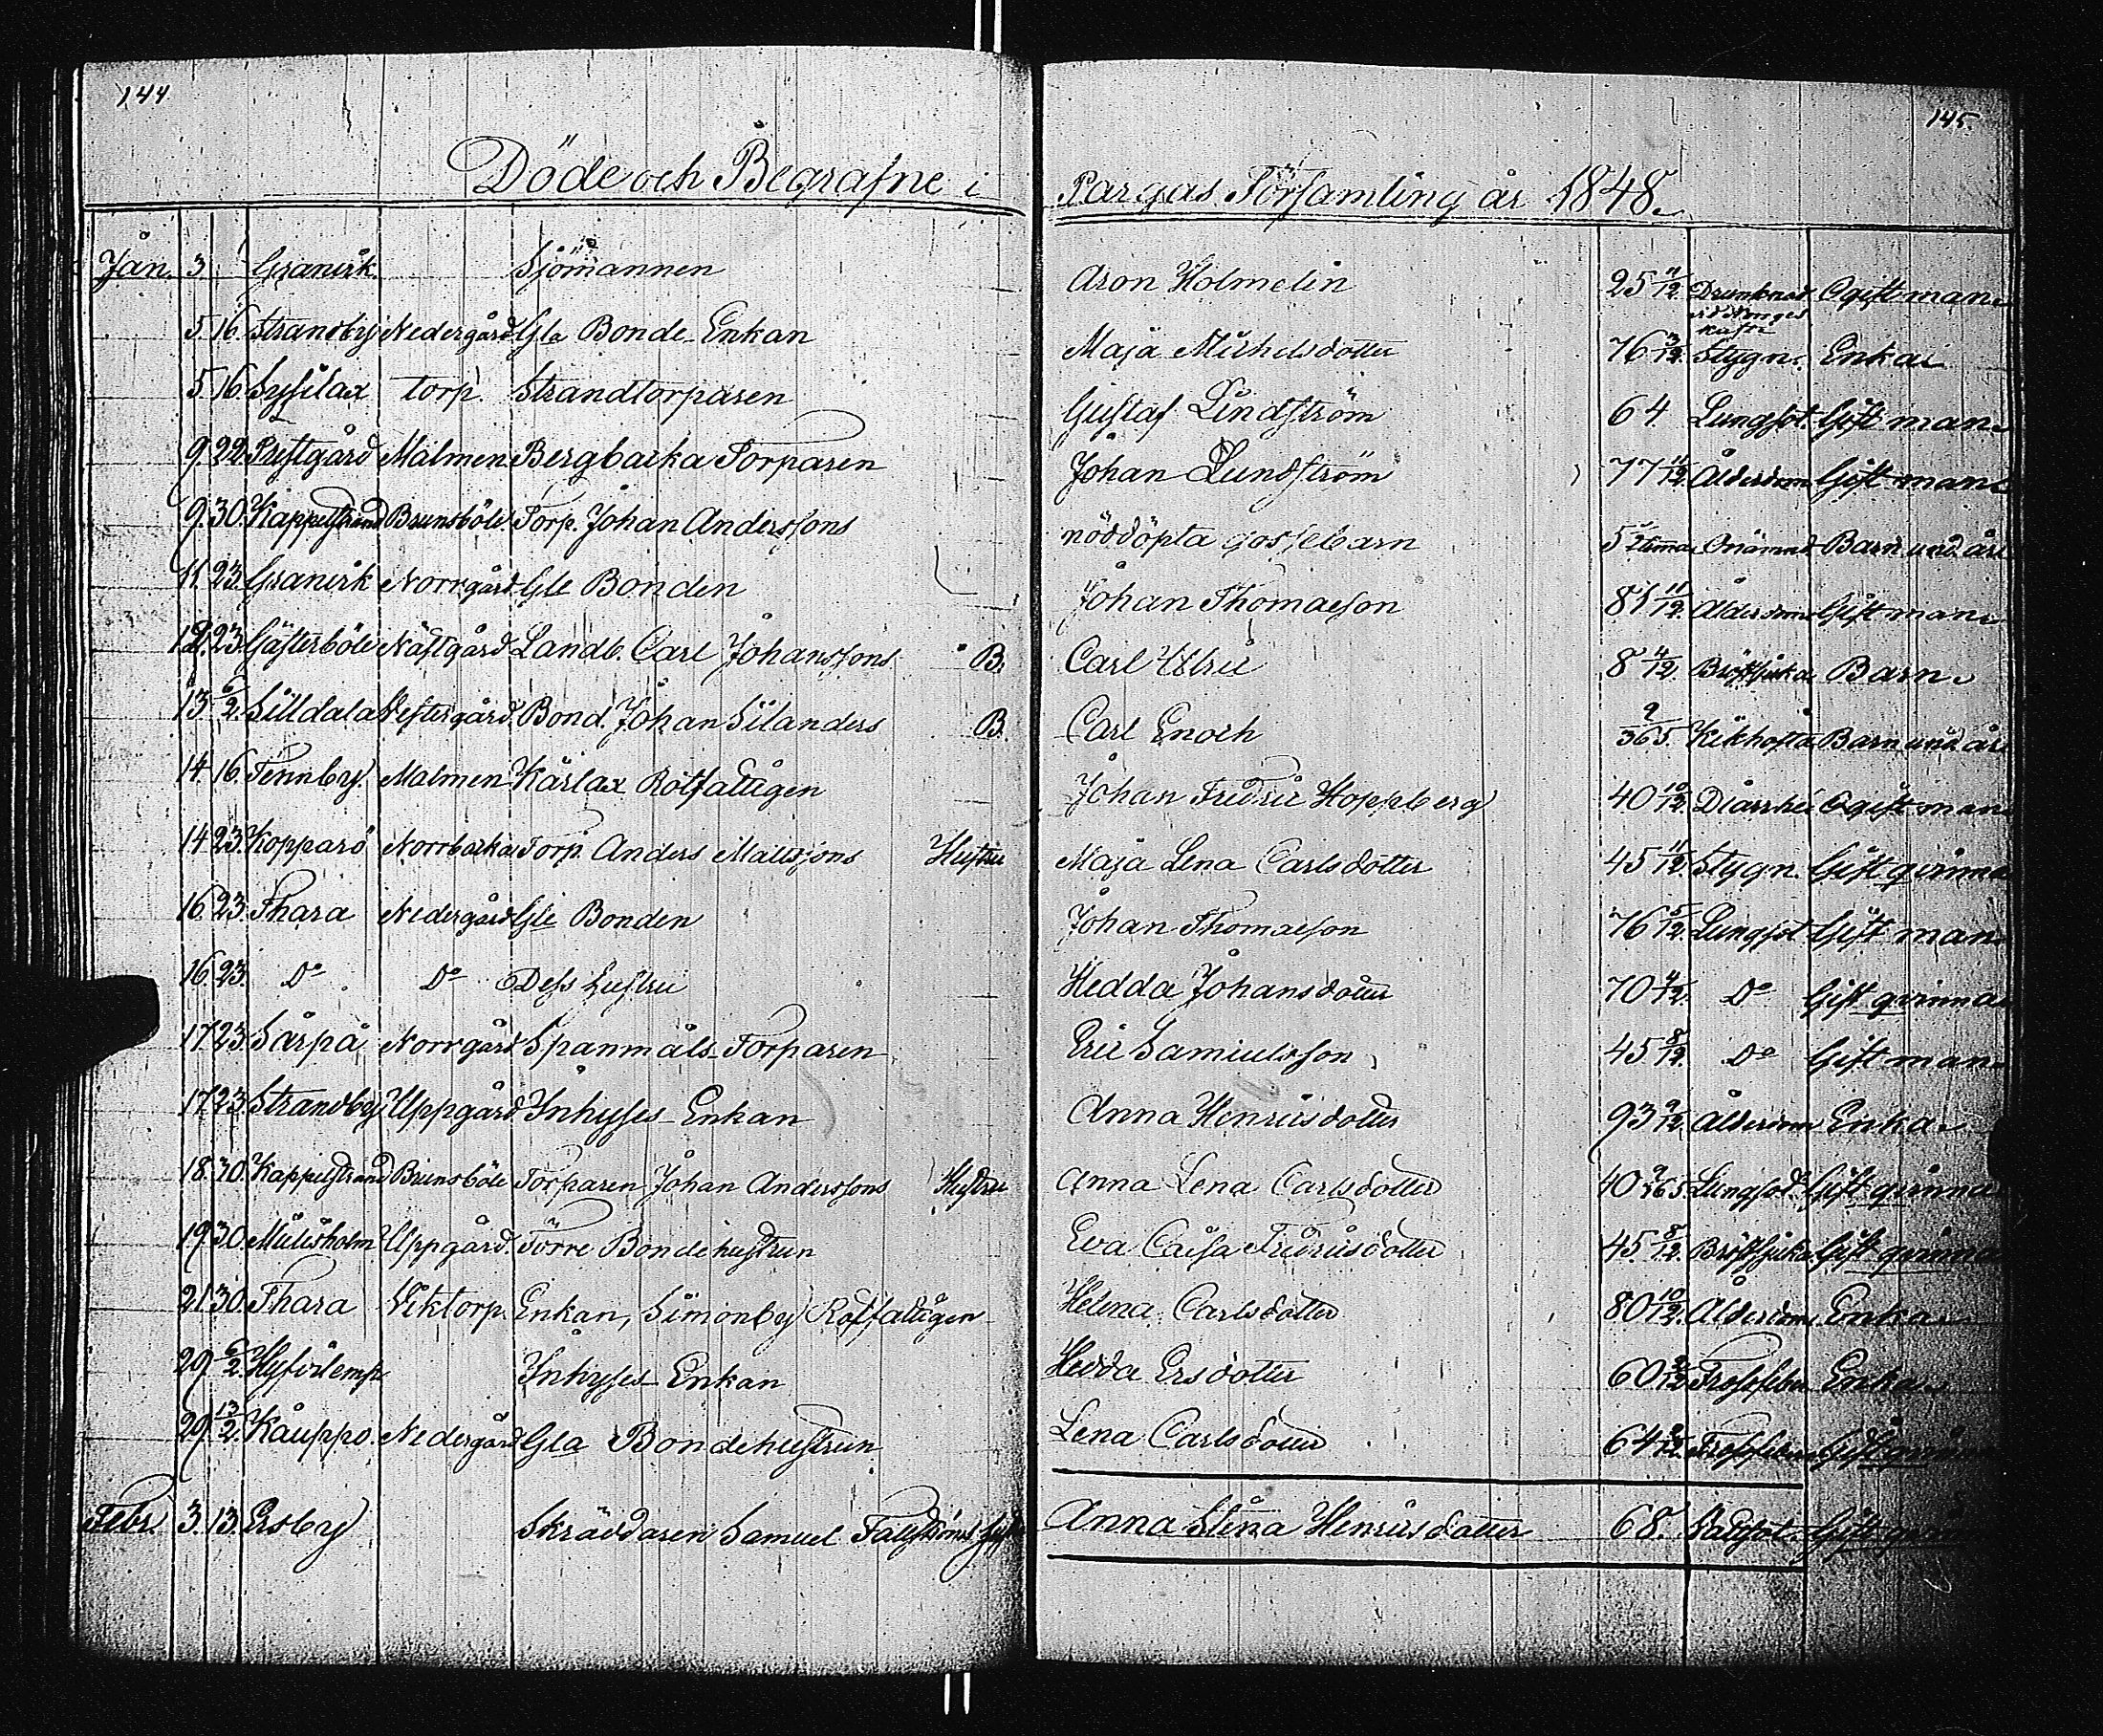 144
145.
Döde och Begrafne i Pargas Församling år 1848.
Jan. 3. Granvik. Sjömannen Aron Holmelin 25 11/12. Drunknad vid Norges Ogift man.
5. 16. Strandby Nedergård Gla Bonde Enkan Maja Michelsdotter 76 3/12. Stygn. Enka
5. 16. Sysilax torp. Strandtorparen Gustaf Lindström 64. Lungsot. Gift man.
9. 22. Prestgård Malmen Bergbacka Torparen Johan Lundström 77 11/12. Ålderdom Gift man.
9. 30. Kappelstrand Brunsböle Torp. Johan Anderssons nöddöpta gossebarn 5 timmar Onämnd Barn und. året
11. 23. Granvik Norrgård Gle Bonden Johan Thomasson 81 11/12. Ålderdom Gift man.
12. 23. Gästerböle Nästgård Landb. Carl Johanssons B. Carl Ulric 8 4/12. Bröstsjuka Barn.
13. 6/2. Silldala Vestergård. Bond. Johan Silanders B. Carl Enoch 9/365. Kikhosta Barn und. året
14. 16. Tennby. Malmen Kårlax Rotfattigen Johan Fredric Hoppberg 40 10/12. Diarrhé Ogift man
14. 23. Kopparö Norrbacka Torp. Anders Mattssons Hustru Maja Lena Carlsdotter 45 11/12. Stygn. Gift qvinna
16. 23. Thara Nedergård Gle Bonden Johan Thomasson 76 5/12. Lungsot Gift man.
16. 23. Do Do Dess hustru Hedda Johansdotter 70 4/12. Do Gift qvinna
17. 23. Sarpå Norrgård Spanmåls Torparen Eric Samuelsson 45 8/12. Do Gift man.
17. 23. Strandby Uppgård Inhyses Enkan Anna Henricsdotter 93 9/12. Ålderdom Enka.
18. 30. Kappelstrand Brunsböle Torparen Johan Anderssons Hustru Anna Lena Carlsdotter 40 9/365. Lungsot. Gift qvinna
19. 30. Mielisholm Uppgård. Förre Bondehustrun Eva Caisa Fredricsdotter 45. 8/12. Bröstsjuka Gift qvinna
21. 30. Thara Viktorp. Enkan, Simonby Rotfattigen Helena Carlsdotter 80 10/12. Ålderdom. Enka
29. 6/2. Inhyses Enkan Hedda Ersdotter 60 Enka.
29. 13/2. Kauppo. Nedergård Gla Bondehustrun Lena Carlsdotter 64 Gift qvinna
Febr. 3. 13. Ersby Skräddaren Samuel Anna Stina Henricsdotter 68. Vattsot. Gift